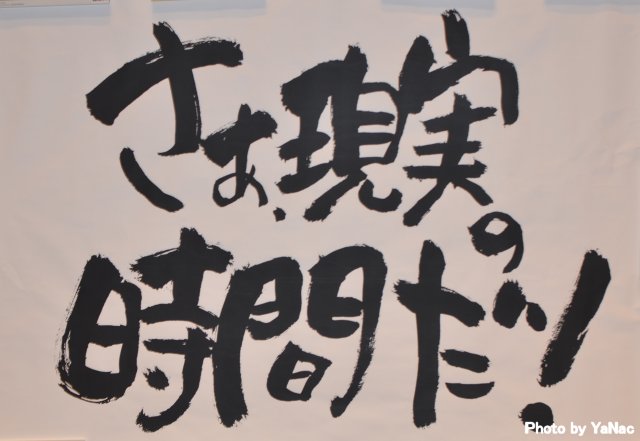 さぁ、現実の
時間だ!
Photo by YaNac